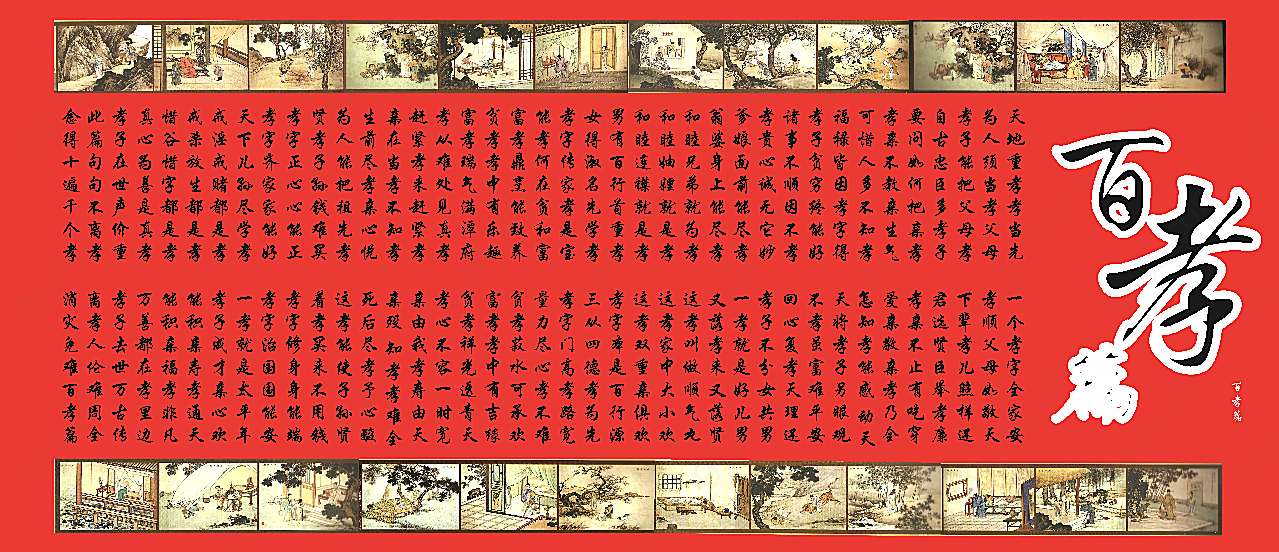 百孝篇
百孝篇
天地重孝孝当先
一个孝字全家安
为人须当孝父母
孝顺父母如敬天
孝子能把父母孝
下辈孝儿照样还
自古忠臣多孝子
君选贤臣举孝廉
要问如何把亲孝
孝亲不止有吃穿
孝亲不教亲生气
爱亲敬亲孝乃全
可惜人多不知孝
怎知孝能感动天
福禄皆因孝字得
天将孝子另眼观
孝子贫穷终能好
不孝虽富难平安
诸事不顺因不孝
回心复孝天理还
孝贵心诚无它妙
孝子不分女共男
爹娘面前能尽孝
一孝就是好儿男
翁婆身上能尽孝
又落孝来又落贤
和睦兄弟就为孝
这孝叫做顺气丸
和睦妯娌就是孝
这孝家中大小欢
和睦连襟就是孝
这孝双重亲俱欢
男有百行首重孝
孝字本是百行源
女得淑名先学孝
三从四德孝为先
孝字传家孝是宝
孝字门高孝路宽
能孝何在贫和富
量力尽心孝不难
富孝鼎烹能致养
贫孝菽水可承欢
贫孝孝中有乐趣
富孝孝中有吉缘
富孝瑞气满潭府
贫孝祥光透青天
孝从难处见真孝
孝心不容一时宽
赶紧孝来赶紧孝
亲由我孝寿由天
亲在当孝不知孝
亲殁知孝孝难全
生前尽孝亲心悦
死后尽孝予心酸
为人能把祖先孝
这孝能使子孙贤
贤孝子孙钱难买
着孝买来不用钱
孝字正心心能正
孝字修身身能端
孝字齐家家能好
孝字治国国能安
天下儿孙尽学孝
一孝就是太平年
戒淫戒赌都是孝
孝子成才亲心欢
戒杀放生都是孝
能积亲寿孝通天
惜谷惜字都是孝
能积亲福孝非凡
真心为善是真孝
万善都在孝里边
孝子在世声价重
孝子去世万古传
此篇句句不离孝
离孝人伦难周全
念得十遍千个孝
消灾免难百孝篇